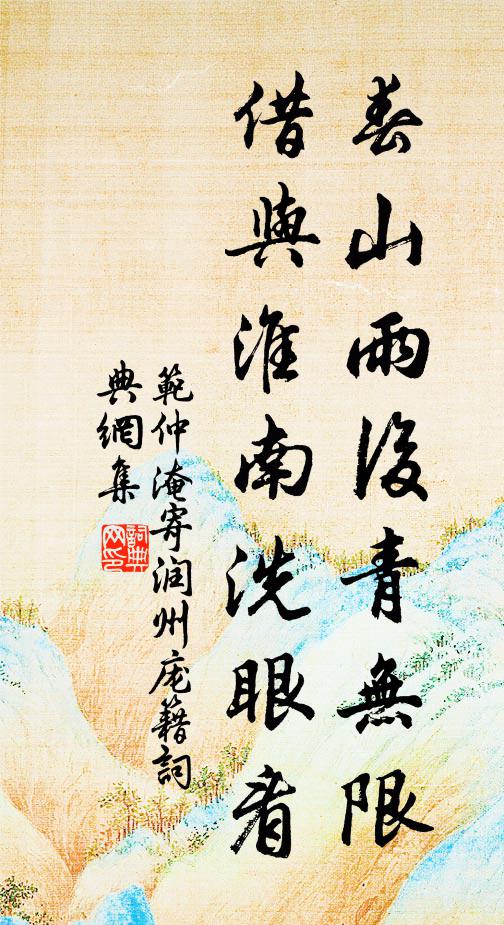 春山雨後青無限
借與淮南洗眼看
範仲淹寄润州庞籍詞
典網集
詞典